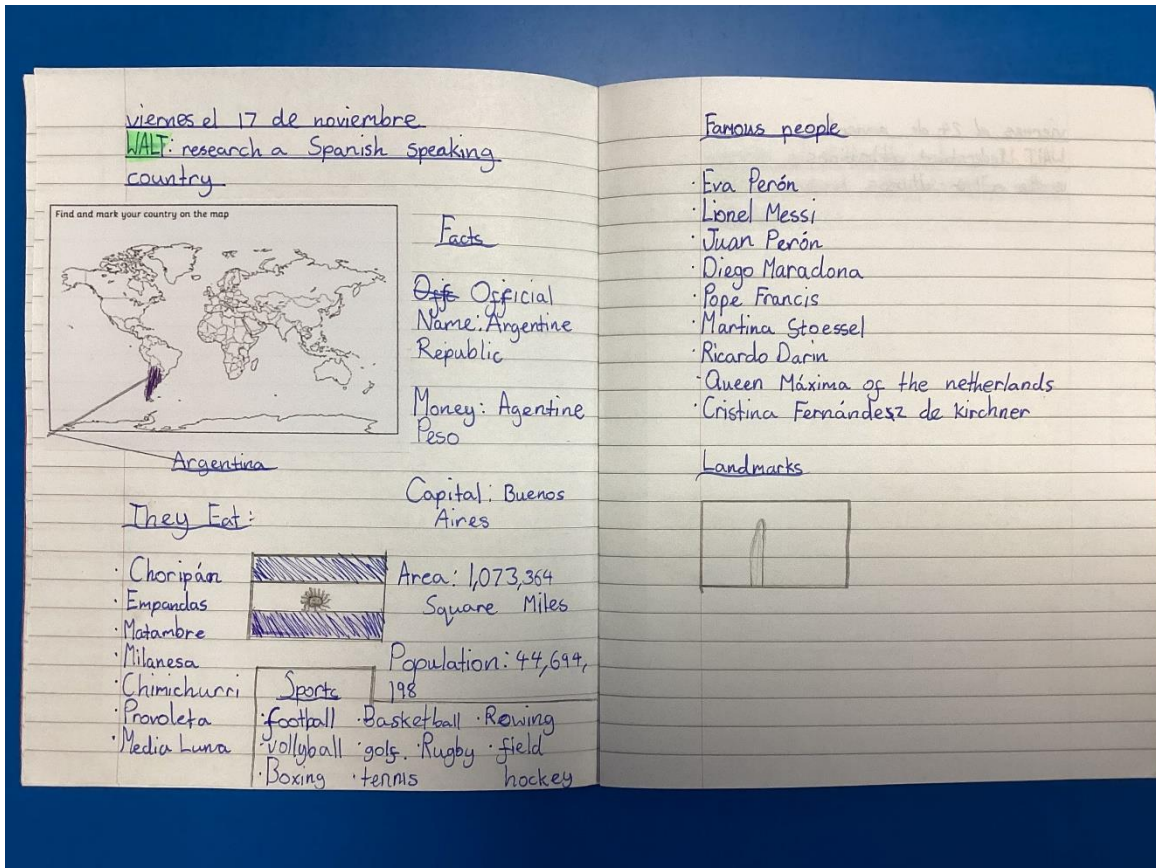 viernes el 17 de noviembre
WALT: research a Spanish speaking
country
Find and mark your country on the map
Argentina
Facts
Offe Official
Name: Argentine
Republic
Money: Agentine
Peso
Capital: Buenos
Aires
Area: 1,073,364
Square Miles
Population: 44,694,
198
They Eat:
· Choripán
· Empandas
· Matambre
· Milanesa
· Chimichurri
· Provoleta
· Media Luna
Sports
· football · Basketball · Rowing
· vollyball · golf · Rugby · field
· Boxing · tennis hockey
Famous people
· Eva Perón
· Lionel Messi
· Juan Perón
· Diego Maradona
· Pope Francis
· Martina Stoessel
· Ricardo Darin
· Queen Máxima of the netherlands
· Cristina Fernández de kirchner
Landmarks